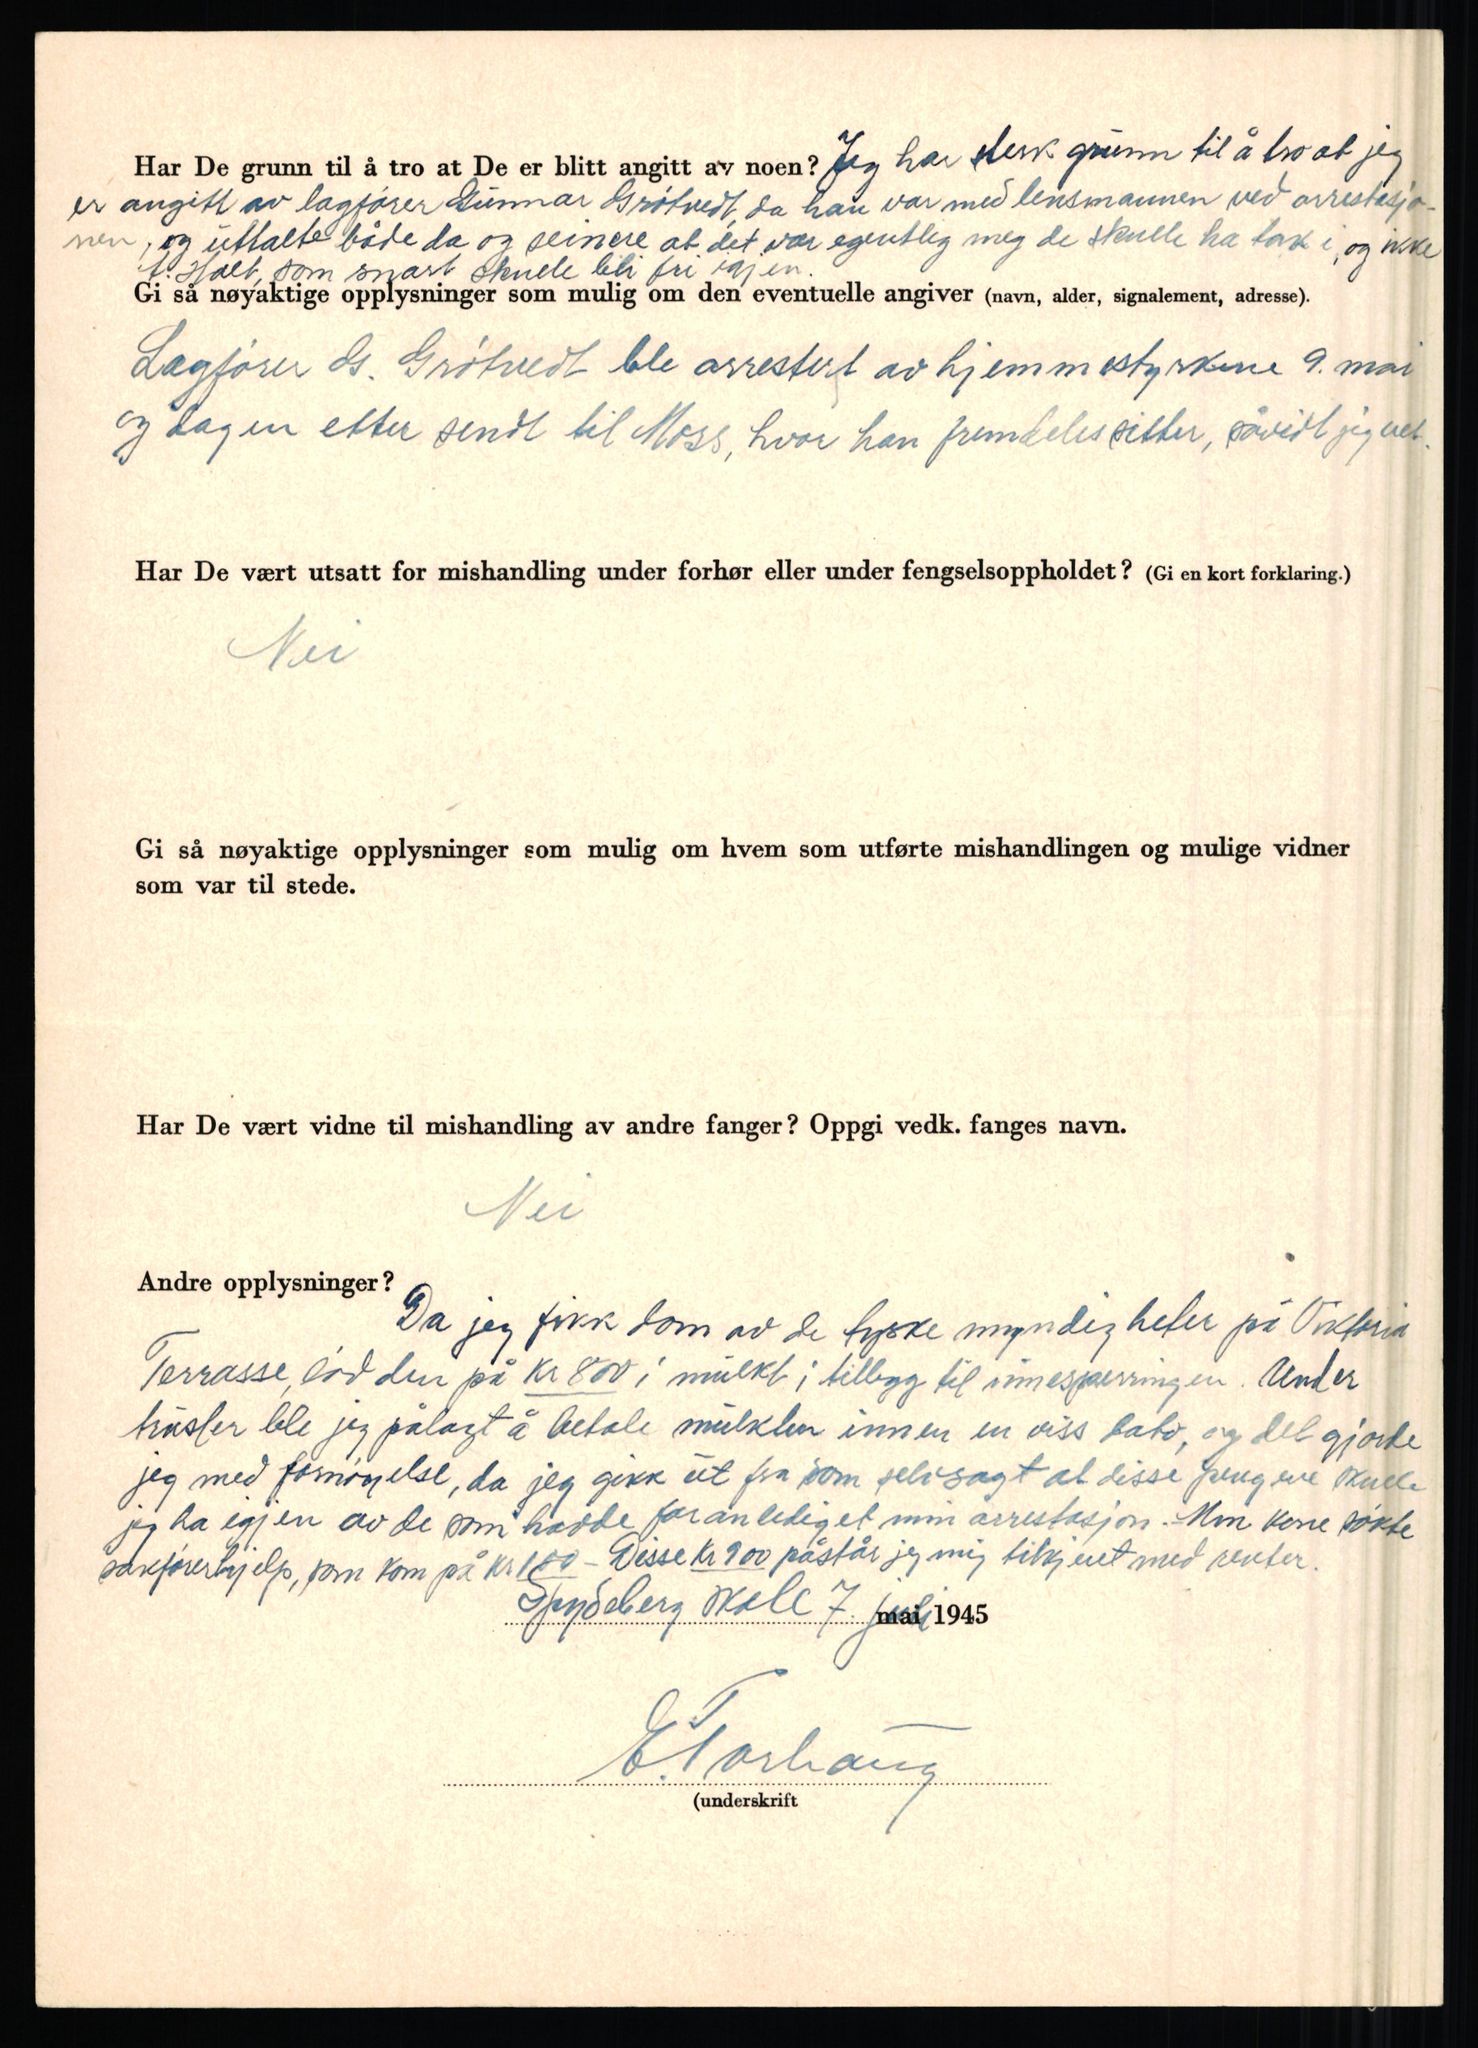 Har De grunn til å tro at De er blitt angitt av noen? Jeg har sterk grunn til å tro at jeg
er angitt av lagfører Gunnar Grøtvedt, da han var med lensmannen ved arrestasjo-
nen, og uttalte både da og seinere at det var egentlig meg de skulle ha tak i, og ikke
t. Holt, som snart skulle bli fri igjen.
Gi så nøyaktige opplysninger som mulig om den eventuelle angiver (navn, alder, signalement, adresse).
Lagfører G. Grøtvedt ble arrestert av hjemmestyrkene 9. mai
og dagen etter sendt til Moss, hvor han fremdeles sitter, såvidt jeg vet.
Har De vært utsatt for mishandling under forhør eller under fengselsoppholdet? (Gi en kort forklaring.)
Nei
Gi så nøyaktige opplysninger som mulig om hvem som utførte mishandlingen og mulige vidner
som var til stede.
Har De vært vidne til mishandling av andre fanger? Oppgi vedk. fanges navn.
Nei
Andre opplysninger?
Da jeg fikk dom av de tyske myndigheter på Viktoria
Terrasse, lød den på kr 800 i mulkt i tillegg til innesperringen. Under
trusler ble jeg pålagt å betale mulkten innen en viss dato, og det gjorde
jeg med fornøyelse, da jeg gikk ut fra som selvsagt at disse pengene skulle
jeg ha igjen av de som hadde foranlediget min arrestasjon. Min kone søkte
sakførerhjelp, som kom på kr 100 – Disse kr 900 påstår jeg mig tilkjent med renter.
Spydeberg skole 7. juli mai 1945
E. Torhaug
(underskrift